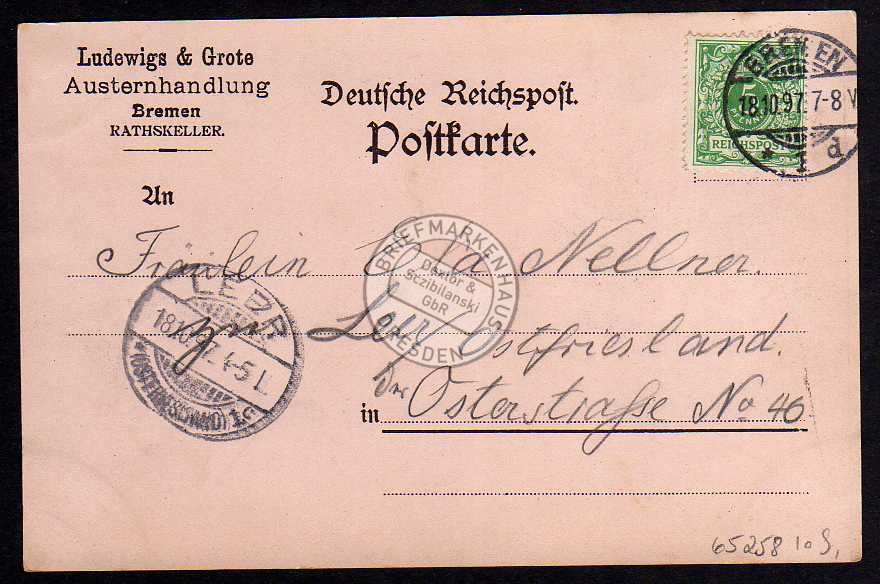 Ludewigs & Grote
Austernhandlung
Bremen
RATHSKELLER.
Deutsche Reichspost.
Postkarte.
5
PFENNIG
REICHSPOST
BREMEN
18.10.97. 7-8 V
* 1 d
An
Fräulein Nellner.
BRIEFMARKENHAUS
Dexter &
Sczibilanski
GbR
DRESDEN
LEER
18.10. 4-5
(OSTFRIESLAND)
in Ostfriesland.
in Osterstraße No 46
65258 10